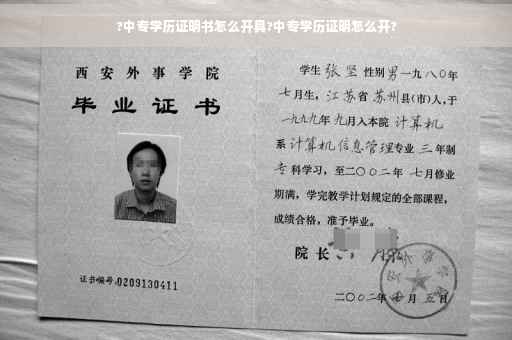 ?中专学历证明书怎么开具?中专学历证明怎么开?
西安外事学院
毕业证书
证书编号:0209130411
学生 张坚 性别 男 一九八〇年
七月生, 江苏省 苏州县(市)人,于
一九九九年 九月入本院 计算机
系 计算机信息管理专业 三 年制
专 科学习,至二〇〇二年 七月修业
期满,学完教学计划规定的全部课程,
成绩合格,准予毕业。
院长
二〇〇二年 月 五日